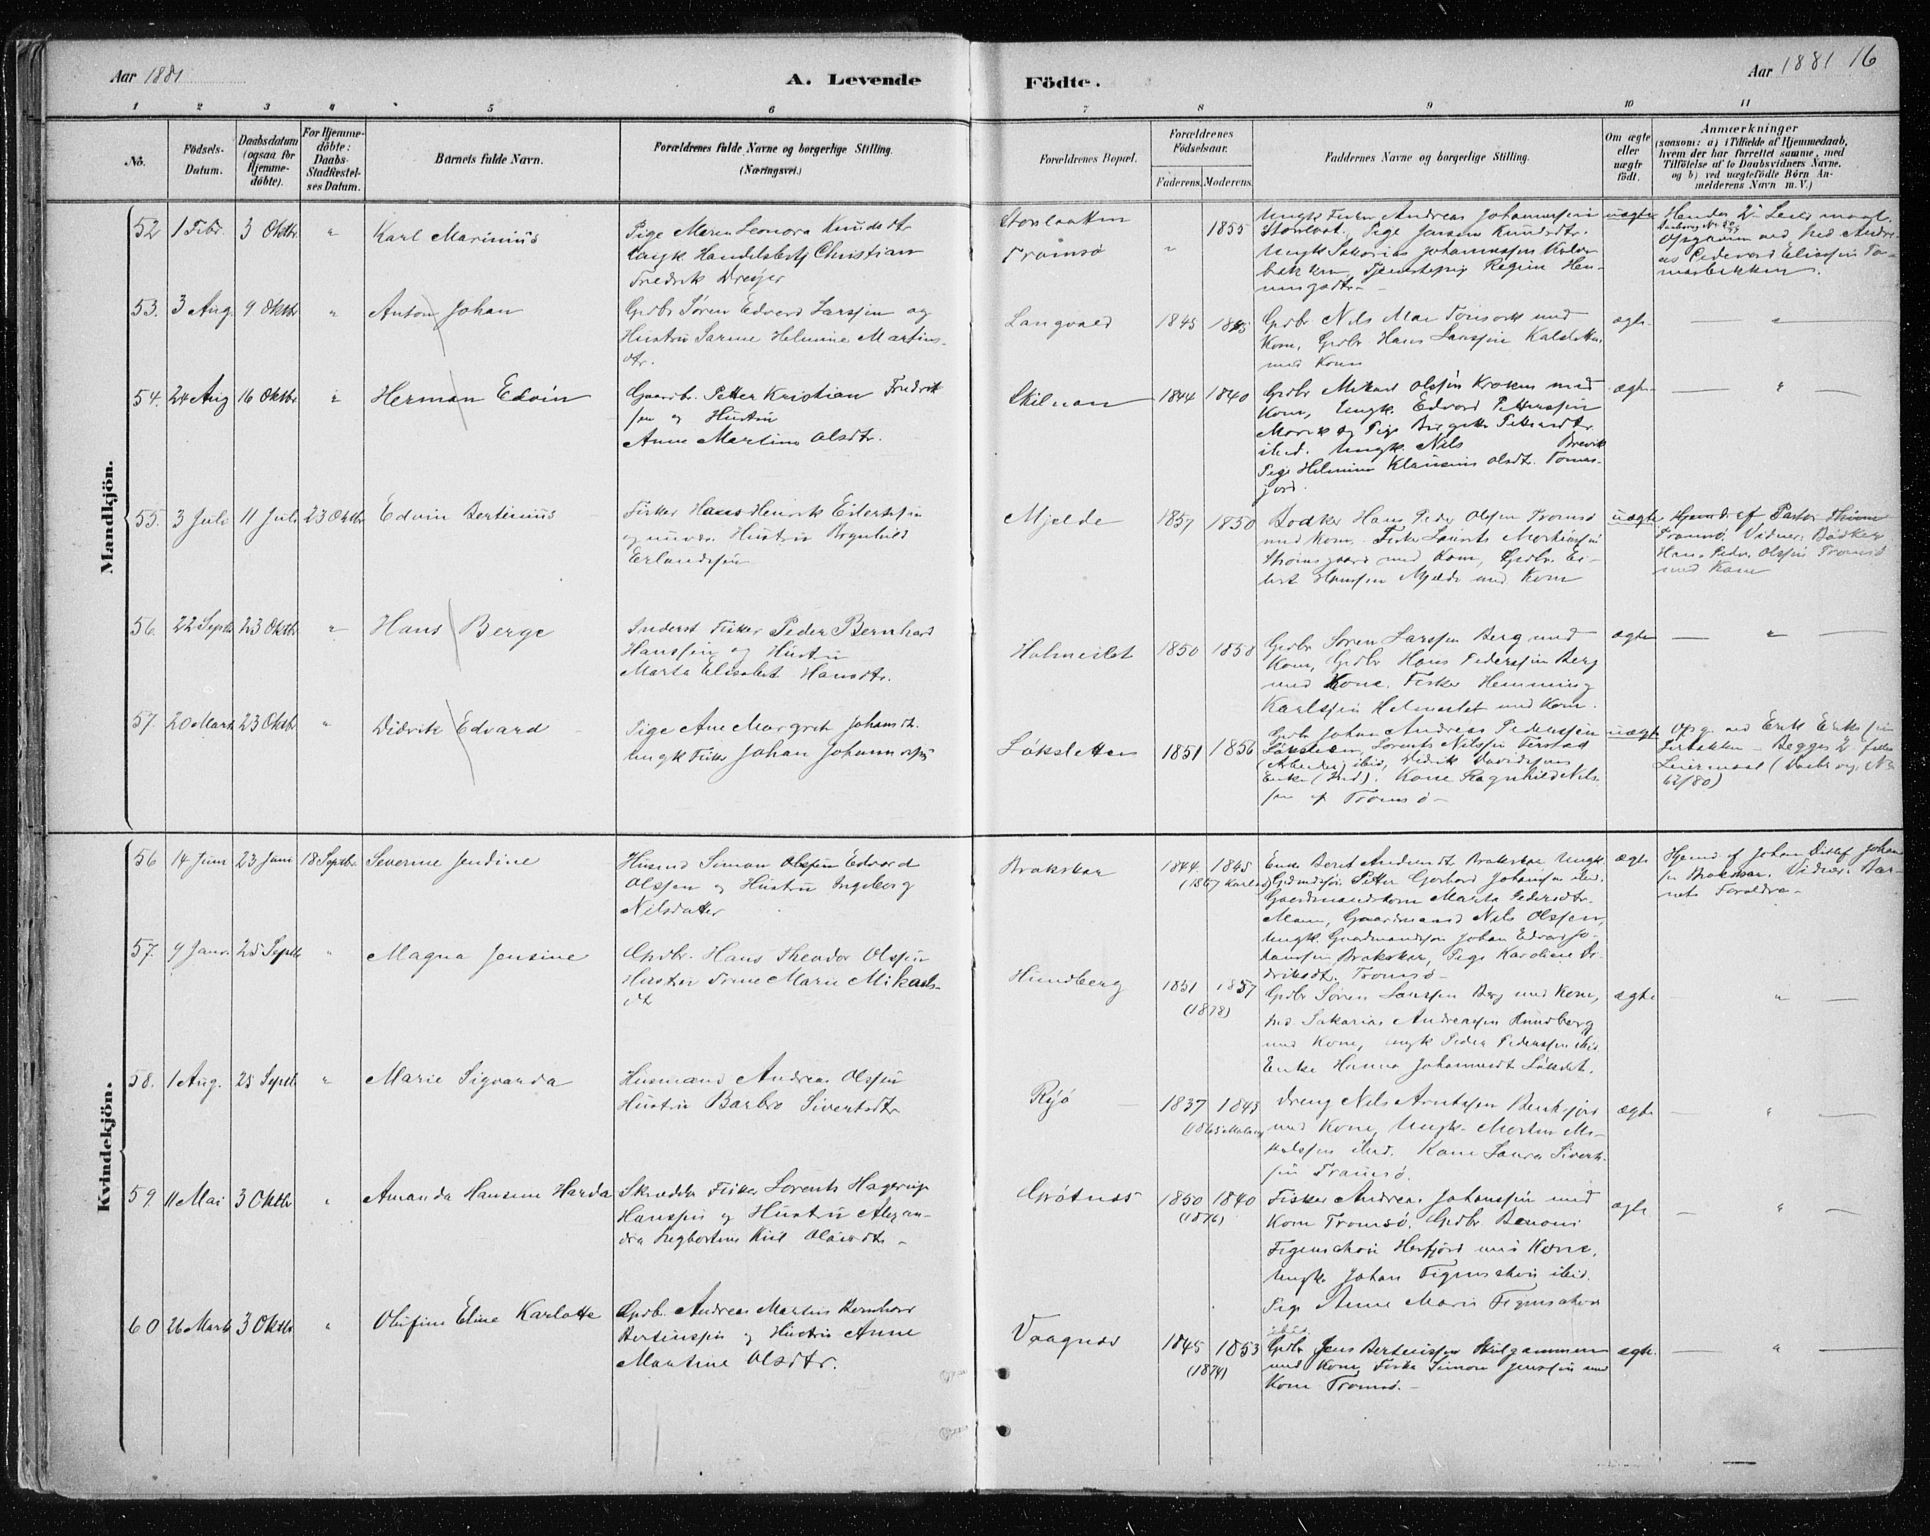 Aar 1881
A. Levende
Födte.
Aar 1881 16
1 2 3 4 5 6 7 8 9 10 11
No.
Födsels-
Datum.
Daabsdatum
(ogsaa for
Hjemme-
döbte).
For Hjemme-
döbte:
Daabs-
Stadfæstel-
ses Datum.
Barnets fulde Navn.
Forældrenes fulde Navne og borgerlige Stilling.
(Næringsvei.)
Forældrenes Bopæl.
Forældrenes
Födselsaar.
Faderens. Moderens.
Faddernes Navne og borgerlige Stilling.
Om ægte
eller
uægte
födt.
Anmærkninger
(saasom: a) i Tilfælde af Hjemmedaab,
hvem der har forrettet samme, med
Tilföielse af to Daabsvidners Navne,
og b) ved uægtefödte Börn An-
melderens Navn m. V.)
Mandkjön.
52 1 Febr. 3 Oktbr. " Karl Marinius
Pige Maren Leonora Knudsdtr
Ungk Handelsbetj Christian
Fredrik Dreyer
Tromsö
" 1855
Ungk Fisker Andreas Johannessen
Storslet. Pige Jensen Knudsdtr.
Ungk Sakarias Johannessen
bakken, Tjenestepig Regine Hen-
ningsdtr.
uægte
Hendes 2det Leiermaal
Opgiven ved
53. 3 Aug. 9 Oktbr " Anton Johan
Grdbr Sören Edvard Larssen og
Hustru Sarine Helmine Martins-
dtr.
Langvaed
1845 1845
Grdbr Nils Mar Tonsvik med
Kone, Grdbr Hans Larssen Kalsletten
med Kone
ægte
— " —
54. 24 Aug 16 Oktbr " Herman Edvin
Gaardbr. Petter Kristian Fredrik
sen og Hustru
Anne Martine Olsdtr.
Skilnan
1844 1840
Grdbr Mikael Olsen Kroken med
Kone, Ungk. Edvard Pettersen
Mavik og Pige Birgitte Pettersdtr
ibid. Ungk. Nils Brevik
Pige Helmine Klausine Olsdt. Tomas-
jord.
ægte
— " —
55. 3 Juli 11 Juli 23 Oktbr Edvin Bertinius
Fisker Hans Henrik Eilertsen
og Hustru Bergithe
Erlandsen
Mjelde
1857 1850
Bödker Hans Peder Olsen Tromsö
med Kone. Fisker Laurits Mortensen
Strömsgaard med Kone, Grdbr Ei-
lert Hansen Mjelde med Kone
uægte
Hjemd. af Pastor
Tromsö. Vidner: Bödker
Hans Peder Olssen Tromsö
med Kone
56. 22 Septbr 23 Oktbr " Hans Berge
Inderst Fisker Peder Bernhard
Hanssen og Hustru
Marta Elisabet Hansdtr.
Holmeslet
1850 1858
Grdbr Sören Larssen Berg med
Kone, Grdbr Hans Pederssen Berg
med Kone. Fisker Hemming
Karlssen Holmeslet med Kone.
ægte
— " —
57. 20 Marts 23 Oktbr " Didrik Edvard
Pige Ane Margret Johansdt.
Ungk Fisker Johan Johannessen
Löksletten
1851 1856
Grdbr Johan Andreas Pedersen
Löksletten, Lorents Nilssen
ibid, Didrik Davidsens
Enke (ibid). Kone Ragnhild Nils-
sen af Tromsö —
uægte
Opg. ved Erik Erikssen
— Begges 2det fælles
Leiermaal (Daabreg. No
62/80)
Kvindekjön.
56 14 Juni 23 Juni 18 Septbr. Severine Jendine
Husmd Simon Olssen Edvard
Olssen og Hustru Ingeborg
Nilsdatter
Brokskar
1844 1845
(1867 Karlsö)
Enke Beret Andersdt Brokskar Ungk.
Petter Gerhard Johansen ibid.
Gaardmandskone Marta Pedersdtr.
Maen, Gaardmand Nils Olssen,
Ungk. Gaardmandssön Johan Edvard Jo-
hanssen Brokskar, Pige Karoline Di-
drikdt. Tromsö —
ægte
Hjemd. af Johan Ditlef Johan
sen Brokskar. Vidner: Bar-
nets Foreldre —
57. 9 Janr. 25 Septbr " Magna Jensine
Grdbr. Hans Theodor Olssen
Hustru Trine Marie Mikaels-
dt
Hundberg
1851 1857
(1878)
Grdbr Sören Larssen Berg med Kone,
Ind. Sakarias Andreassen Hundberg
med Kone, Ungk Peder Pederssen ibid.
Enke Hanna Johannesdt Lökslet.
ægte
— " —
58. 1 Aug. 25 Septbr. " Marie Sigvarda
Husmand Andreas Olssen
Hustru Barbro Sivertsdtr
Ryö —
1837 1843
(1865 Malang)
Dreng Nils Arntssen Bentsjord
med Kone, Ungk. Morten Mi-
kalssen ibid. Kone Laura Sivert-
sen Tromsö.
ægte
— " —
59. 11 Mai 3 Oktbr " Amanda Hansine Harda
Skrædder Fisker Lorents Hagerup
Hanssen og Hustru Alexan-
dra Ingbortine Kirst Olausdtr —
Grötnæs
1850 1840
(1876)
Fisker Andreas Johanssen med
Kone Tromsö. Grdbr. Benoni
Figenschou Herfjord med Kone,
Ungk. Johan Figenschou ibid.
Pige Anne Marie Figenschou
ibid
ægte
— " —
60 26 Marts 3 Oktbr " Olufine Eline Karlotte
Grdb. Andreas Martin Bernhard
Bertinssen og Hustru Anne
Martine Olsdtr.
Vaagnæs
1845 1853
(1874)
Grdbr Jens Bertinssen Skilgammen
med Kone, Fisker Simon Jenssen med
Kone Tromsö. —
ægte.
— " —